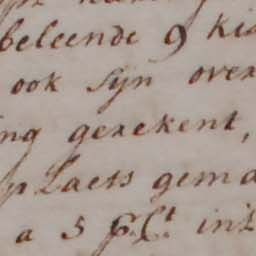 beleende 9 kis
ook syn over
ing gerekent,
plaets gema
a 5 p.Ct. int